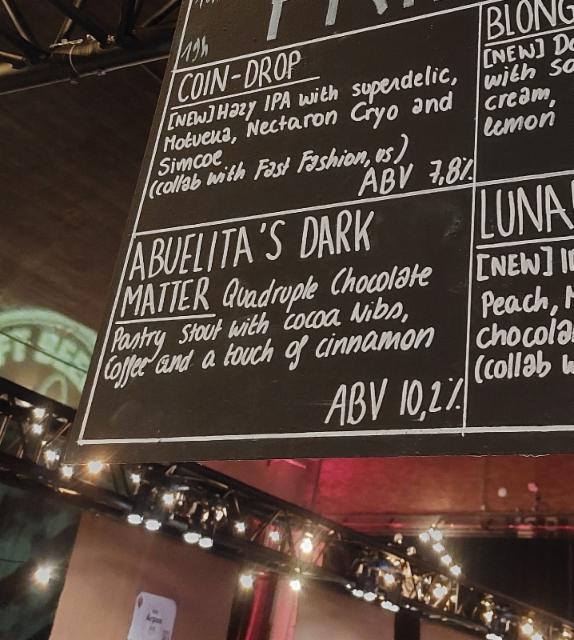 19h
COIN-DROP
[NEW] Hazy IPA with superdelic,
Motueka, Nectaron Cryo and
Simcoe
(collab with Fast Fashion, us)
ABV 7,8%
ABUELITA'S DARK
MATTER Quadruple Chocolate
Pastry Stout with cocoa Nibs,
Coffee and a touch of cinnamon
ABV 10,2%
BLONG
[NEW] Do
with so
cream,
lemon
LUNA
[NEW] I
Peach, M
chocola
(collab w